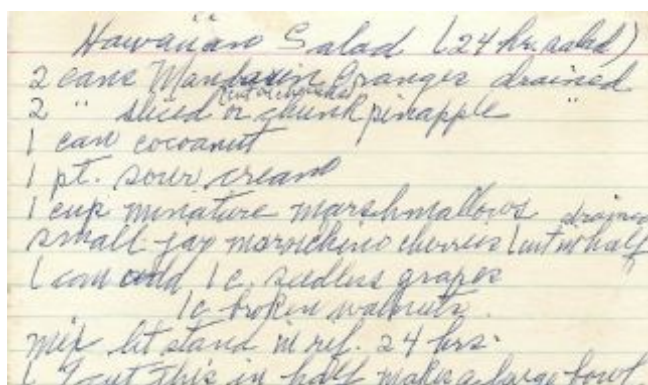 Hawaiian Salad (24 hr. salad)
2 cans Mandarin Oranges drained
(cut in chunks)
2 " sliced or chunk pinapple "
1 can cocoanut
1 pt. sour cream
1 cup minature marshmallows
drained
small jar marichino cherries (cut in half
( can add 1 c. seedless grapes
1c broken walnuts.
mix let stand in ref. 24 hrs.
( I cut this in half makes a large bowl